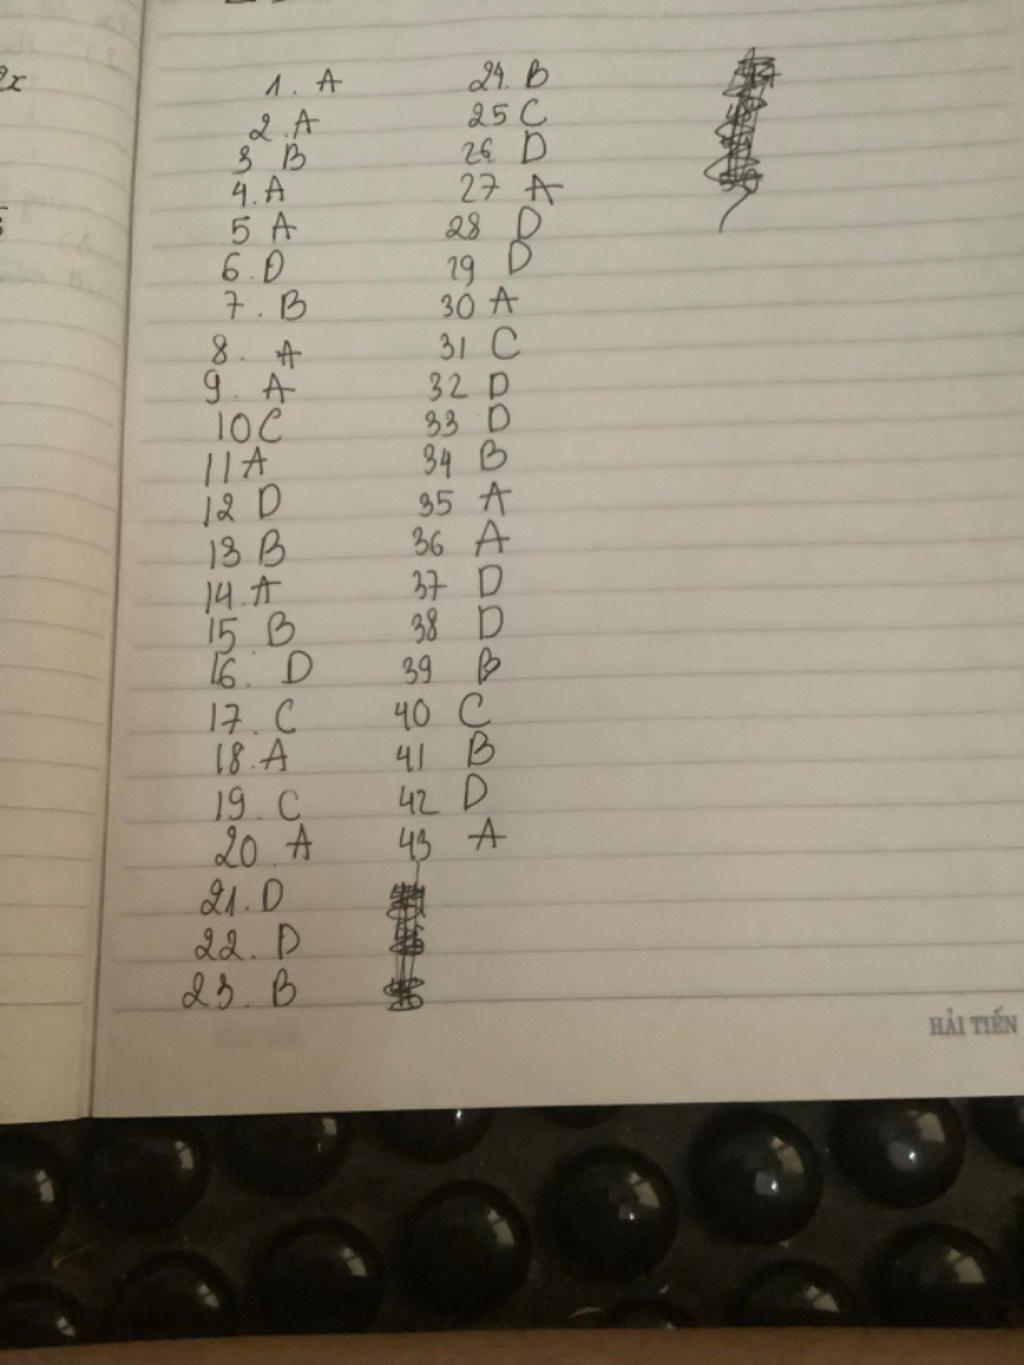 2x
1. A
2. A
3 B
4. A
5 A
6. D
7. B
8. A
9. A
10 C
11 A
12 D
13 B
14. A
15. B
16. D
17. C
18. A
19. C
20. A
21. D
22. D
23. B
24. B
25 C
26 D
27 A
28 D
29 D
30 A
31 C
32 D
33 D
34 B
35 A
36 A
37 D
38 D
39 B
40 C
41 B
42 D
43 A
HẢI TIẾN